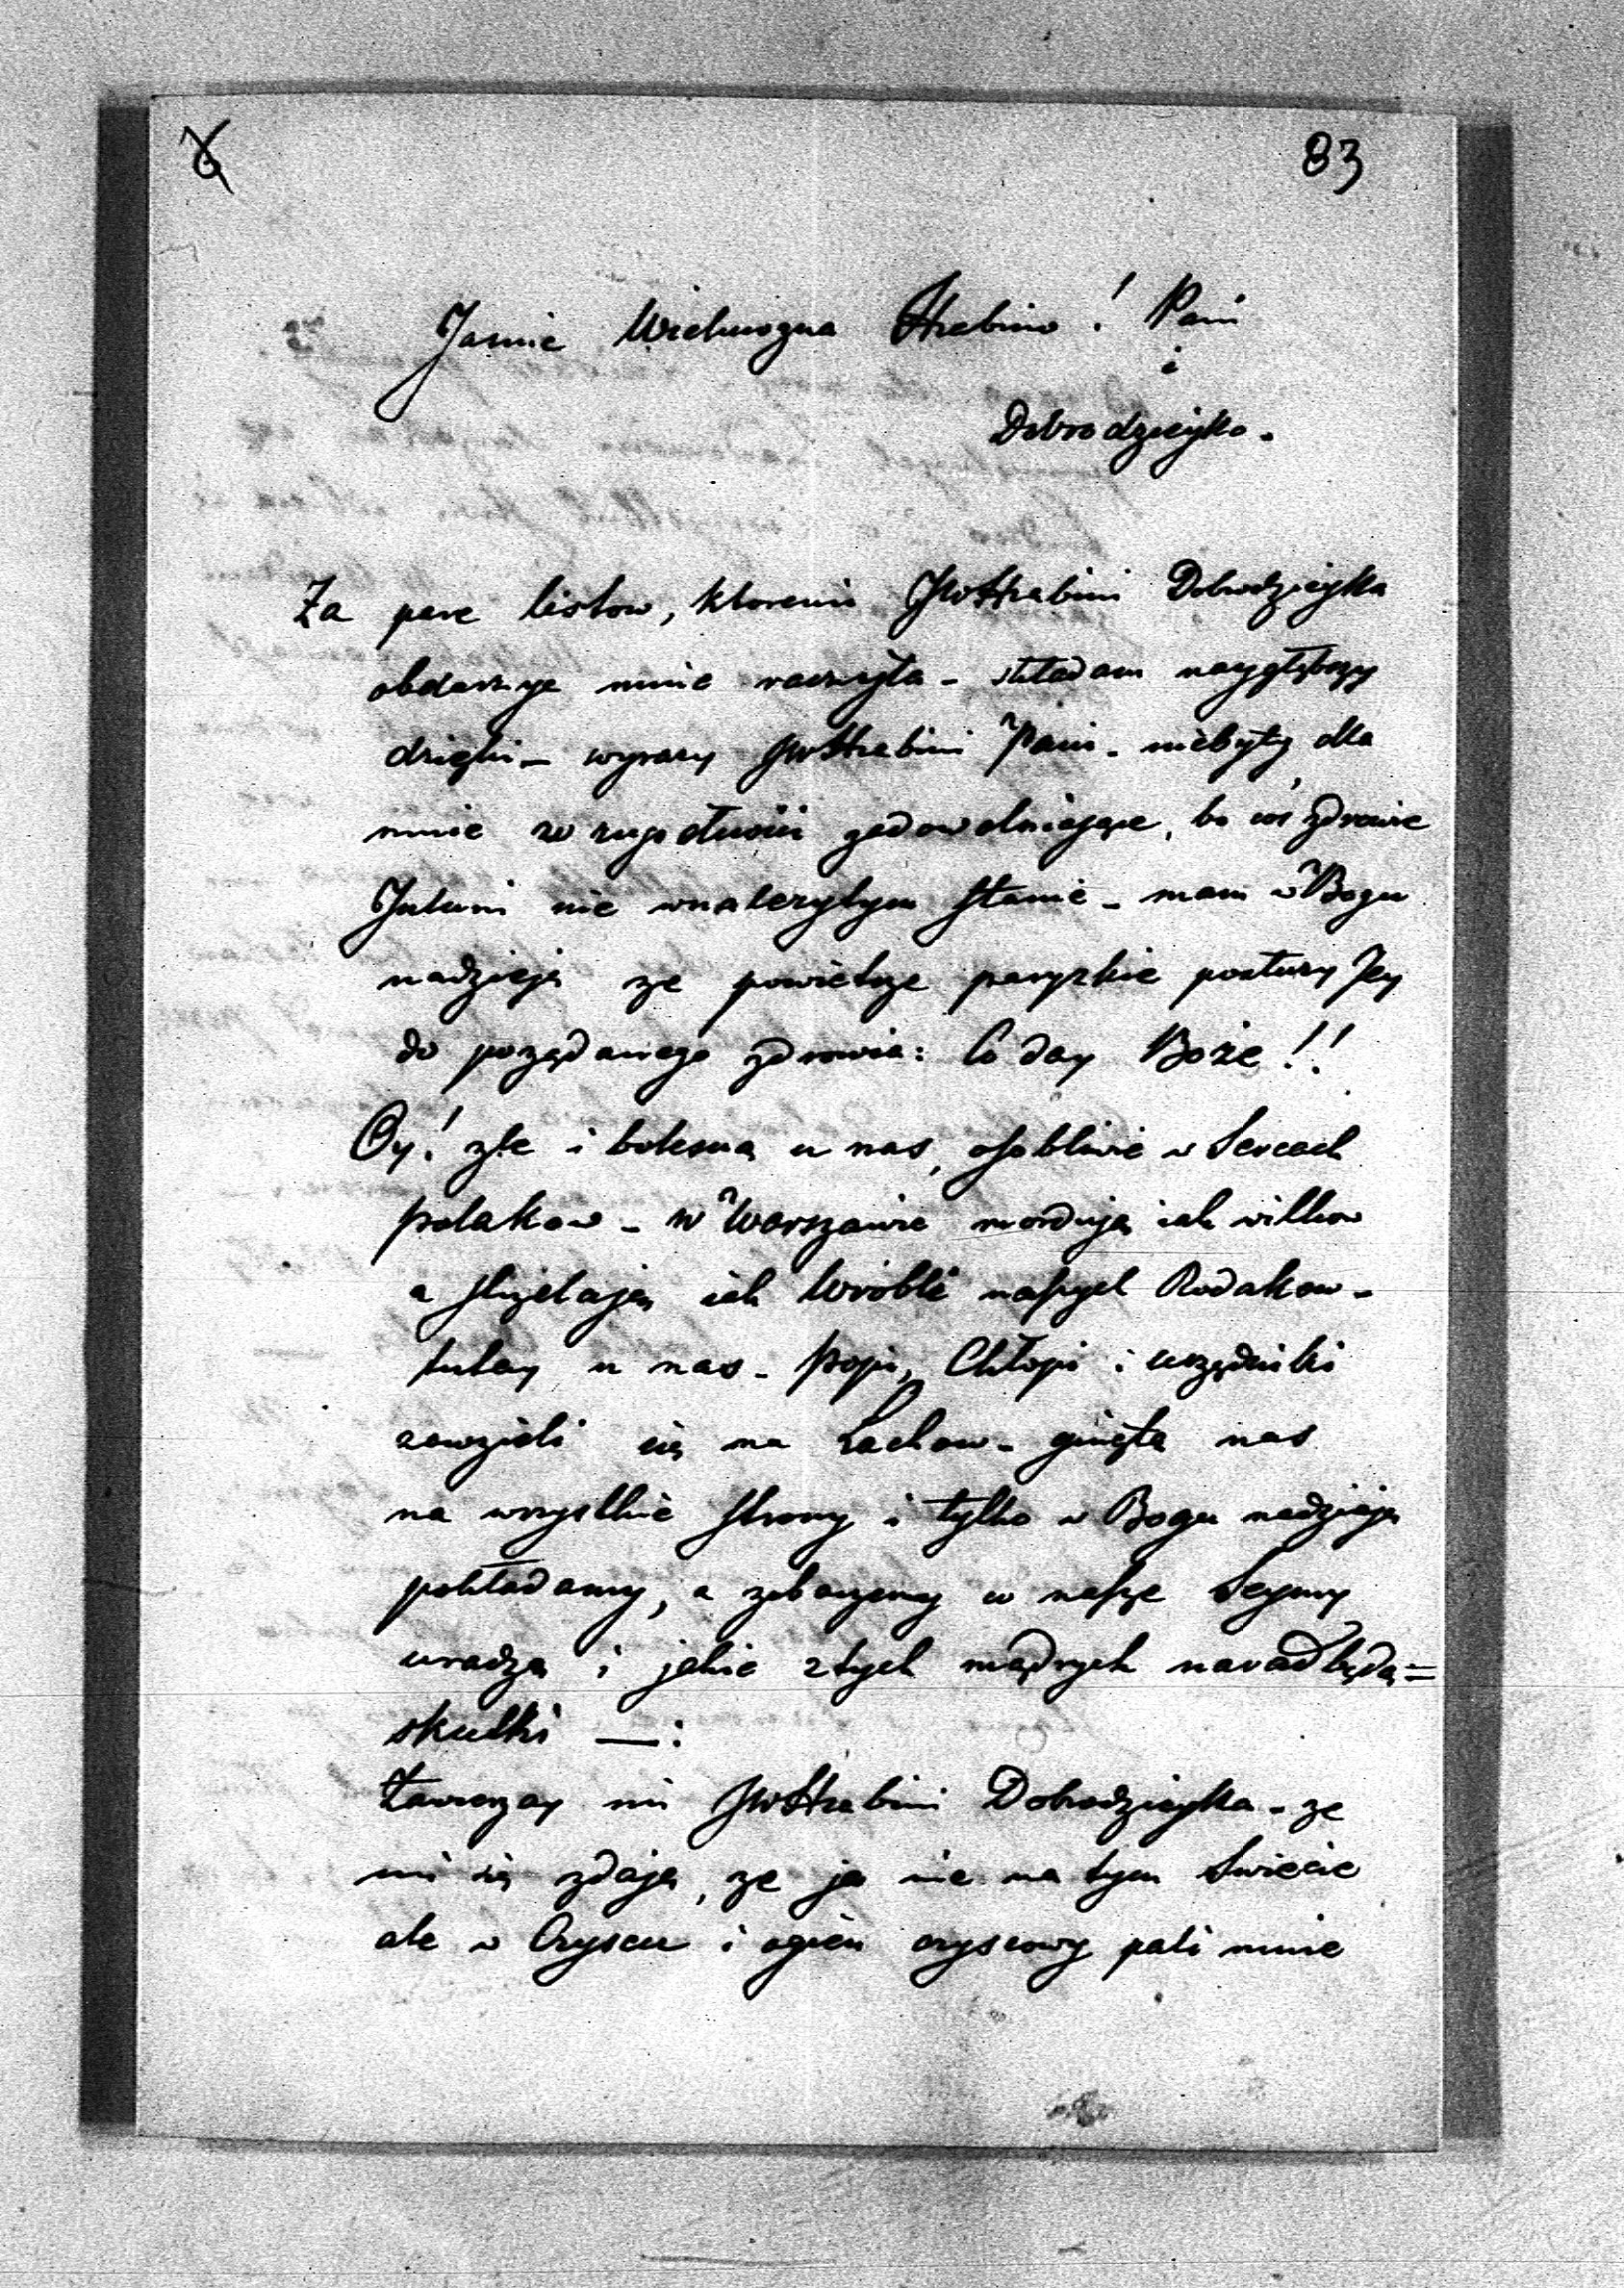 83
Jasnie Wielmozna Hrabino! Pani
i
Dobrodzieyko.
Za pare listow, ktoremi JWHrabini Dobrodzieyka
obdarzyc mnie raczyła - składam naygłębszy
dzięki - wyrazy JWHrabini Pani - niebyły dla
mnie zadowolniające, bo coś zdrowie
Juluni nie wnalezytym stanie - mam w Bogu
nadzieję ze powietrze paryzkie posłuzy Jey
do poządanego zdrowia: Co day Boże!!
Oy! zle i bolesną u nas, osobliwie w Sercach
polakow - w Warszawie mordują iak wilkow
a strzelają iak Wróble naszych Rodakow -
tutay u nas - popi, Chłopi i urzędniki
zawzieli się na Lachow - gnięta nas
na wszystkie strony i tylko w Bogu nadzieję
pokładamy, a zobaczemy co nasze Seymy
uradzą i jakie ztych mądrych narad będą =
skutki —:
JWHrabini Dobrodzieyka - ze
mi się zdaję, ze ja nie na tym Swiecie
ale w Czyscu i ogień czyscowy pali mnie